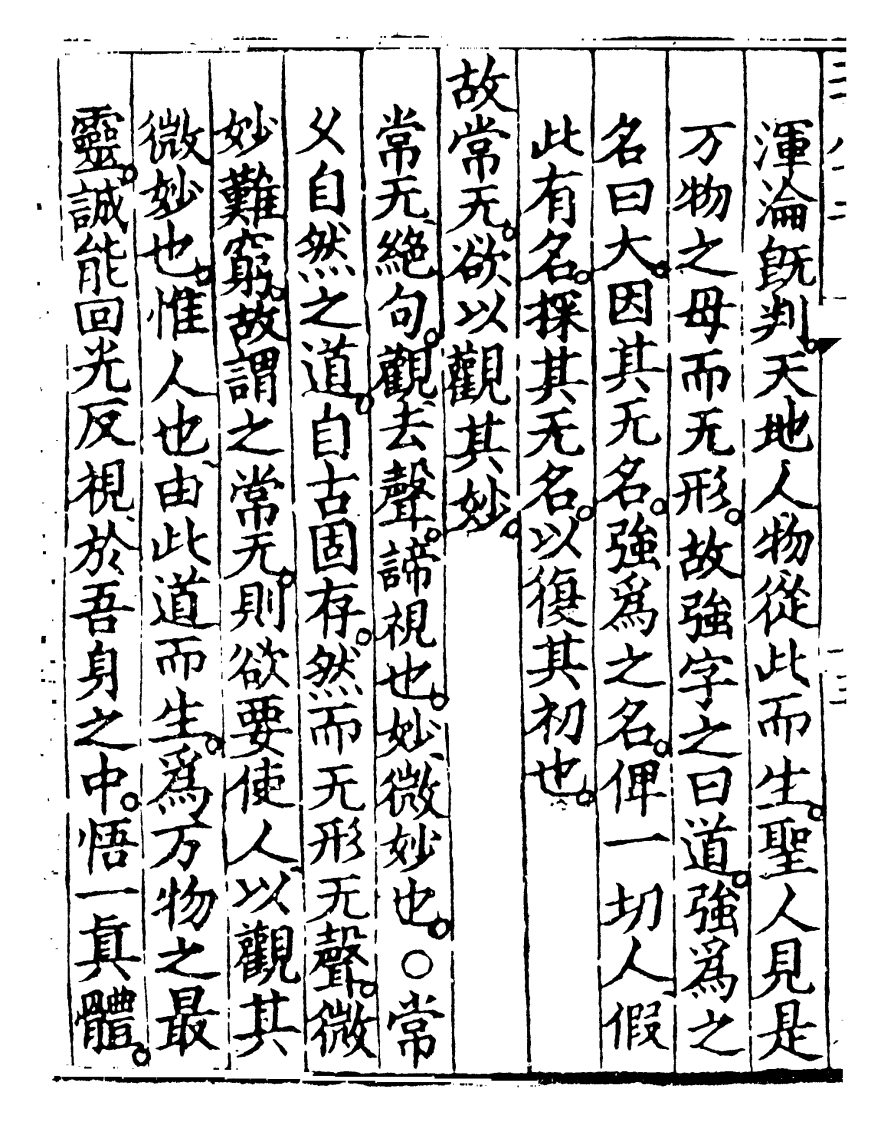 渾淪旣判。天地人物從此而生。聖人見是
万物之母而无形。故強字之曰道。強爲之
名曰大。因其无名。強爲之名。俾一切人假
此有名。探其无名。以復其初也。
故常无。欲以觀其妙。
常无絕句。觀去聲。諦視也。妙、微妙也。○常
父自然之道。自古固存。然而无形无聲。微
妙難窮。故謂之常无。則欲要使人以觀其
微妙也。惟人也由此道而生。爲万物之最
靈。誠能回光反視於吾身之中。悟一眞體。